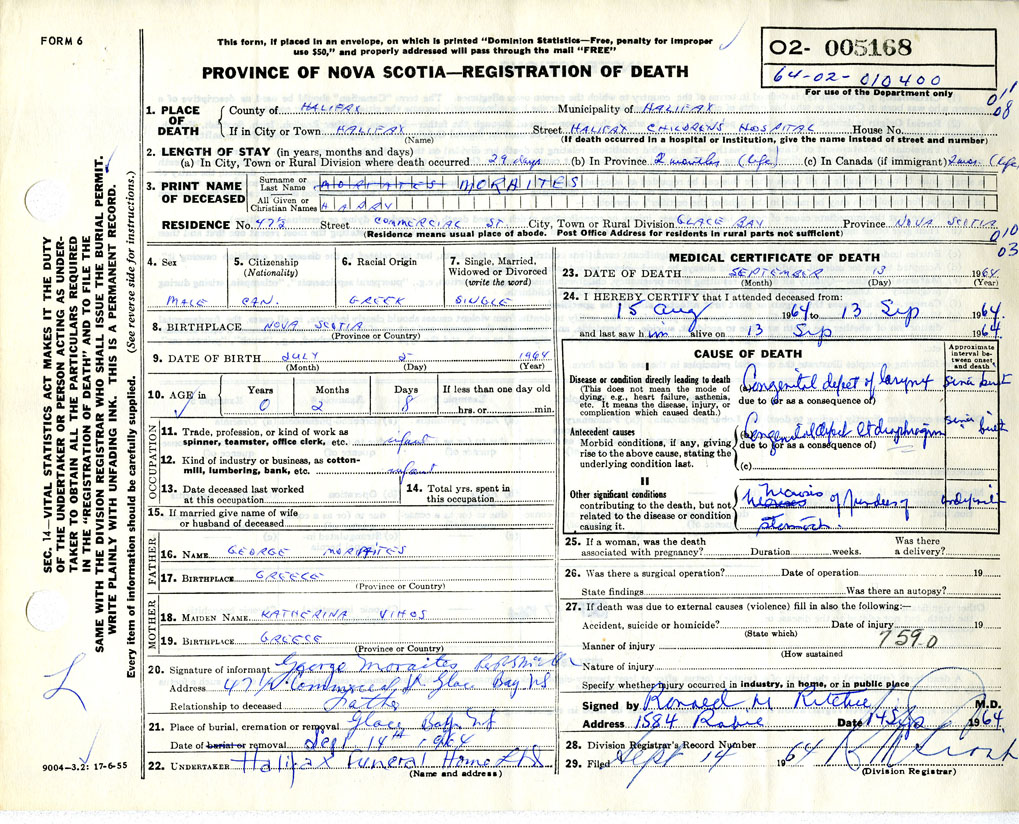 FORM 6
This form, if placed in an envelope, on which is printed "Dominion Statistics—Free, penalty for improper
use $50," and properly addressed will pass through the mail "FREE"
PROVINCE OF NOVA SCOTIA—REGISTRATION OF DEATH
02- 005168
64-02- 010400
For use of the Department only
011
08
1. PLACE OF DEATH
County of HALIFAX Municipality of HALIFAX
If in City or Town HALIFAX Street HALIFAX CHILDRENS HOSPITAL House No.
(Name) (If death occurred in a hospital or institution, give the name instead of street and number)
2. LENGTH OF STAY (in years, months and days)
(a) In City, Town or Rural Division where death occurred 29 days (b) In Province 2 months (life) (c) In Canada (if immigrant) 2 mos. (life
3. PRINT NAME OF DECEASED
Surname or Last Name MORAITES
All Given or Christian Names HARRY
RESIDENCE No. 47½ Street COMMERCIAL ST City, Town or Rural Division GLACE BAY Province NOVA SCOTIA
(Residence means usual place of abode. Post Office Address for residents in rural parts not sufficient)
010
03
4. Sex 5. Citizenship (Nationality) 6. Racial Origin 7. Single, Married, Widowed or Divorced (write the word)
MALE CAN. GREEK SINGLE
8. BIRTHPLACE NOVA SCOTIA
(Province or Country)
9. DATE OF BIRTH JULY 5 1964
(Month) (Day) (Year)
10. AGE in Years Months Days If less than one day old
0 2 8 hrs. or min.
OCCUPATION
11. Trade, profession, or kind of work as spinner, teamster, office clerk, etc. infant
12. Kind of industry or business, as cotton-mill, lumbering, bank, etc. infant
13. Date deceased last worked at this occupation
14. Total yrs. spent in this occupation
15. If married give name of wife or husband of deceased
FATHER
16. NAME GEORGE MORAITES
17. BIRTHPLACE GREECE
(Province or Country)
MOTHER
18. MAIDEN NAME KATHERINA VIHOS
19. BIRTHPLACE GREECE
(Province or Country)
20. Signature of informant George Moraites
Address 47½ Commercial St Glace Bay NS
Relationship to deceased Father
21. Place of burial, cremation or removal Glace Bay NS
Date of burial or removal Sept 14th 1964
22. UNDERTAKER Halifax Funeral Home Ltd
(Name and address)
MEDICAL CERTIFICATE OF DEATH
23. DATE OF DEATH SEPTEMBER 13 1964
(Month) (Day) (Year)
24. I HEREBY CERTIFY that I attended deceased from:
15 Aug 1964 to 13 Sep 1964
and last saw him alive on 13 Sep 1964
CAUSE OF DEATH
Approximate interval between onset and death
I
Disease or condition directly leading to death
(This does not mean the mode of dying, e.g., heart failure, asthenia, etc. It means the disease, injury, or complication which caused death.)
(a) Congenital defect of larynx since birth
due to (or as a consequence of)
Antecedent causes
Morbid conditions, if any, giving rise to the above cause, stating the underlying condition last.
(b) Congenital defect Lt diaphragm since birth
due to (or as a consequence of)
(c)
II
Other significant conditions
contributing to the death, but not related to the disease or condition causing it.
Necrosis of fundus of stomach
25. If a woman, was the death associated with pregnancy? Duration weeks. Was there a delivery?
26. Was there a surgical operation? Date of operation 19
State findings Was there an autopsy?
27. If death was due to external causes (violence) fill in also the following:—
Accident, suicide or homicide? Date of injury 19
(State which)
Manner of injury 7590
(How sustained
Nature of injury
Specify whether injury occurred in industry, in home, or in public place
Signed by Ronald M Ritchie M.D.
Address 1584 Robie Date 14 Sep 1964
28. Division Registrar's Record Number
29. Filed Sept 14 1964
(Division Registrar)
SEC. 14—VITAL STATISTICS ACT MAKES IT THE DUTY
OF THE UNDERTAKER OR PERSON ACTING AS UNDER-
TAKER TO OBTAIN ALL THE PARTICULARS REQUIRED
IN THE "REGISTRATION OF DEATH" AND TO FILE THE
SAME WITH THE DIVISION REGISTRAR WHO SHALL ISSUE THE BURIAL PERMIT.
WRITE PLAINLY WITH UNFADING INK. THIS IS A PERMANENT RECORD.
Every item of information should be carefully supplied. (See reverse side for instructions.)
9004-3.2: 17-6-55